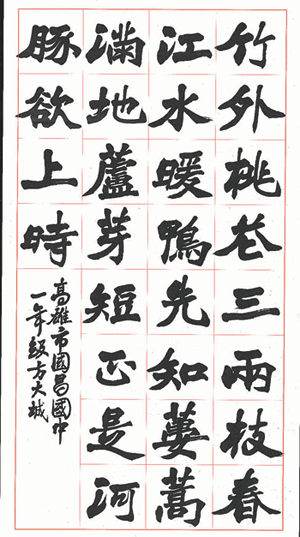 竹外桃花三兩枝春
江水暖鴨先知蔞蒿
滿地蘆芽短正是河
豚欲上時
高雄市國昌國中
一年級大城